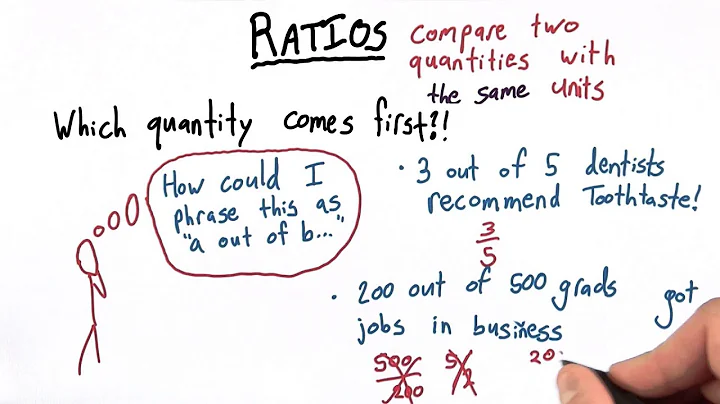 RATIOS
compare two
quantities with
the same units
Which quantity comes first?!
How could I
phrase this as
"a out of b..."
• 3 out of 5 dentists
recommend Toothtaste!
3
5
• 200 out of 500 grads got
jobs in business
500 5 20
200 2